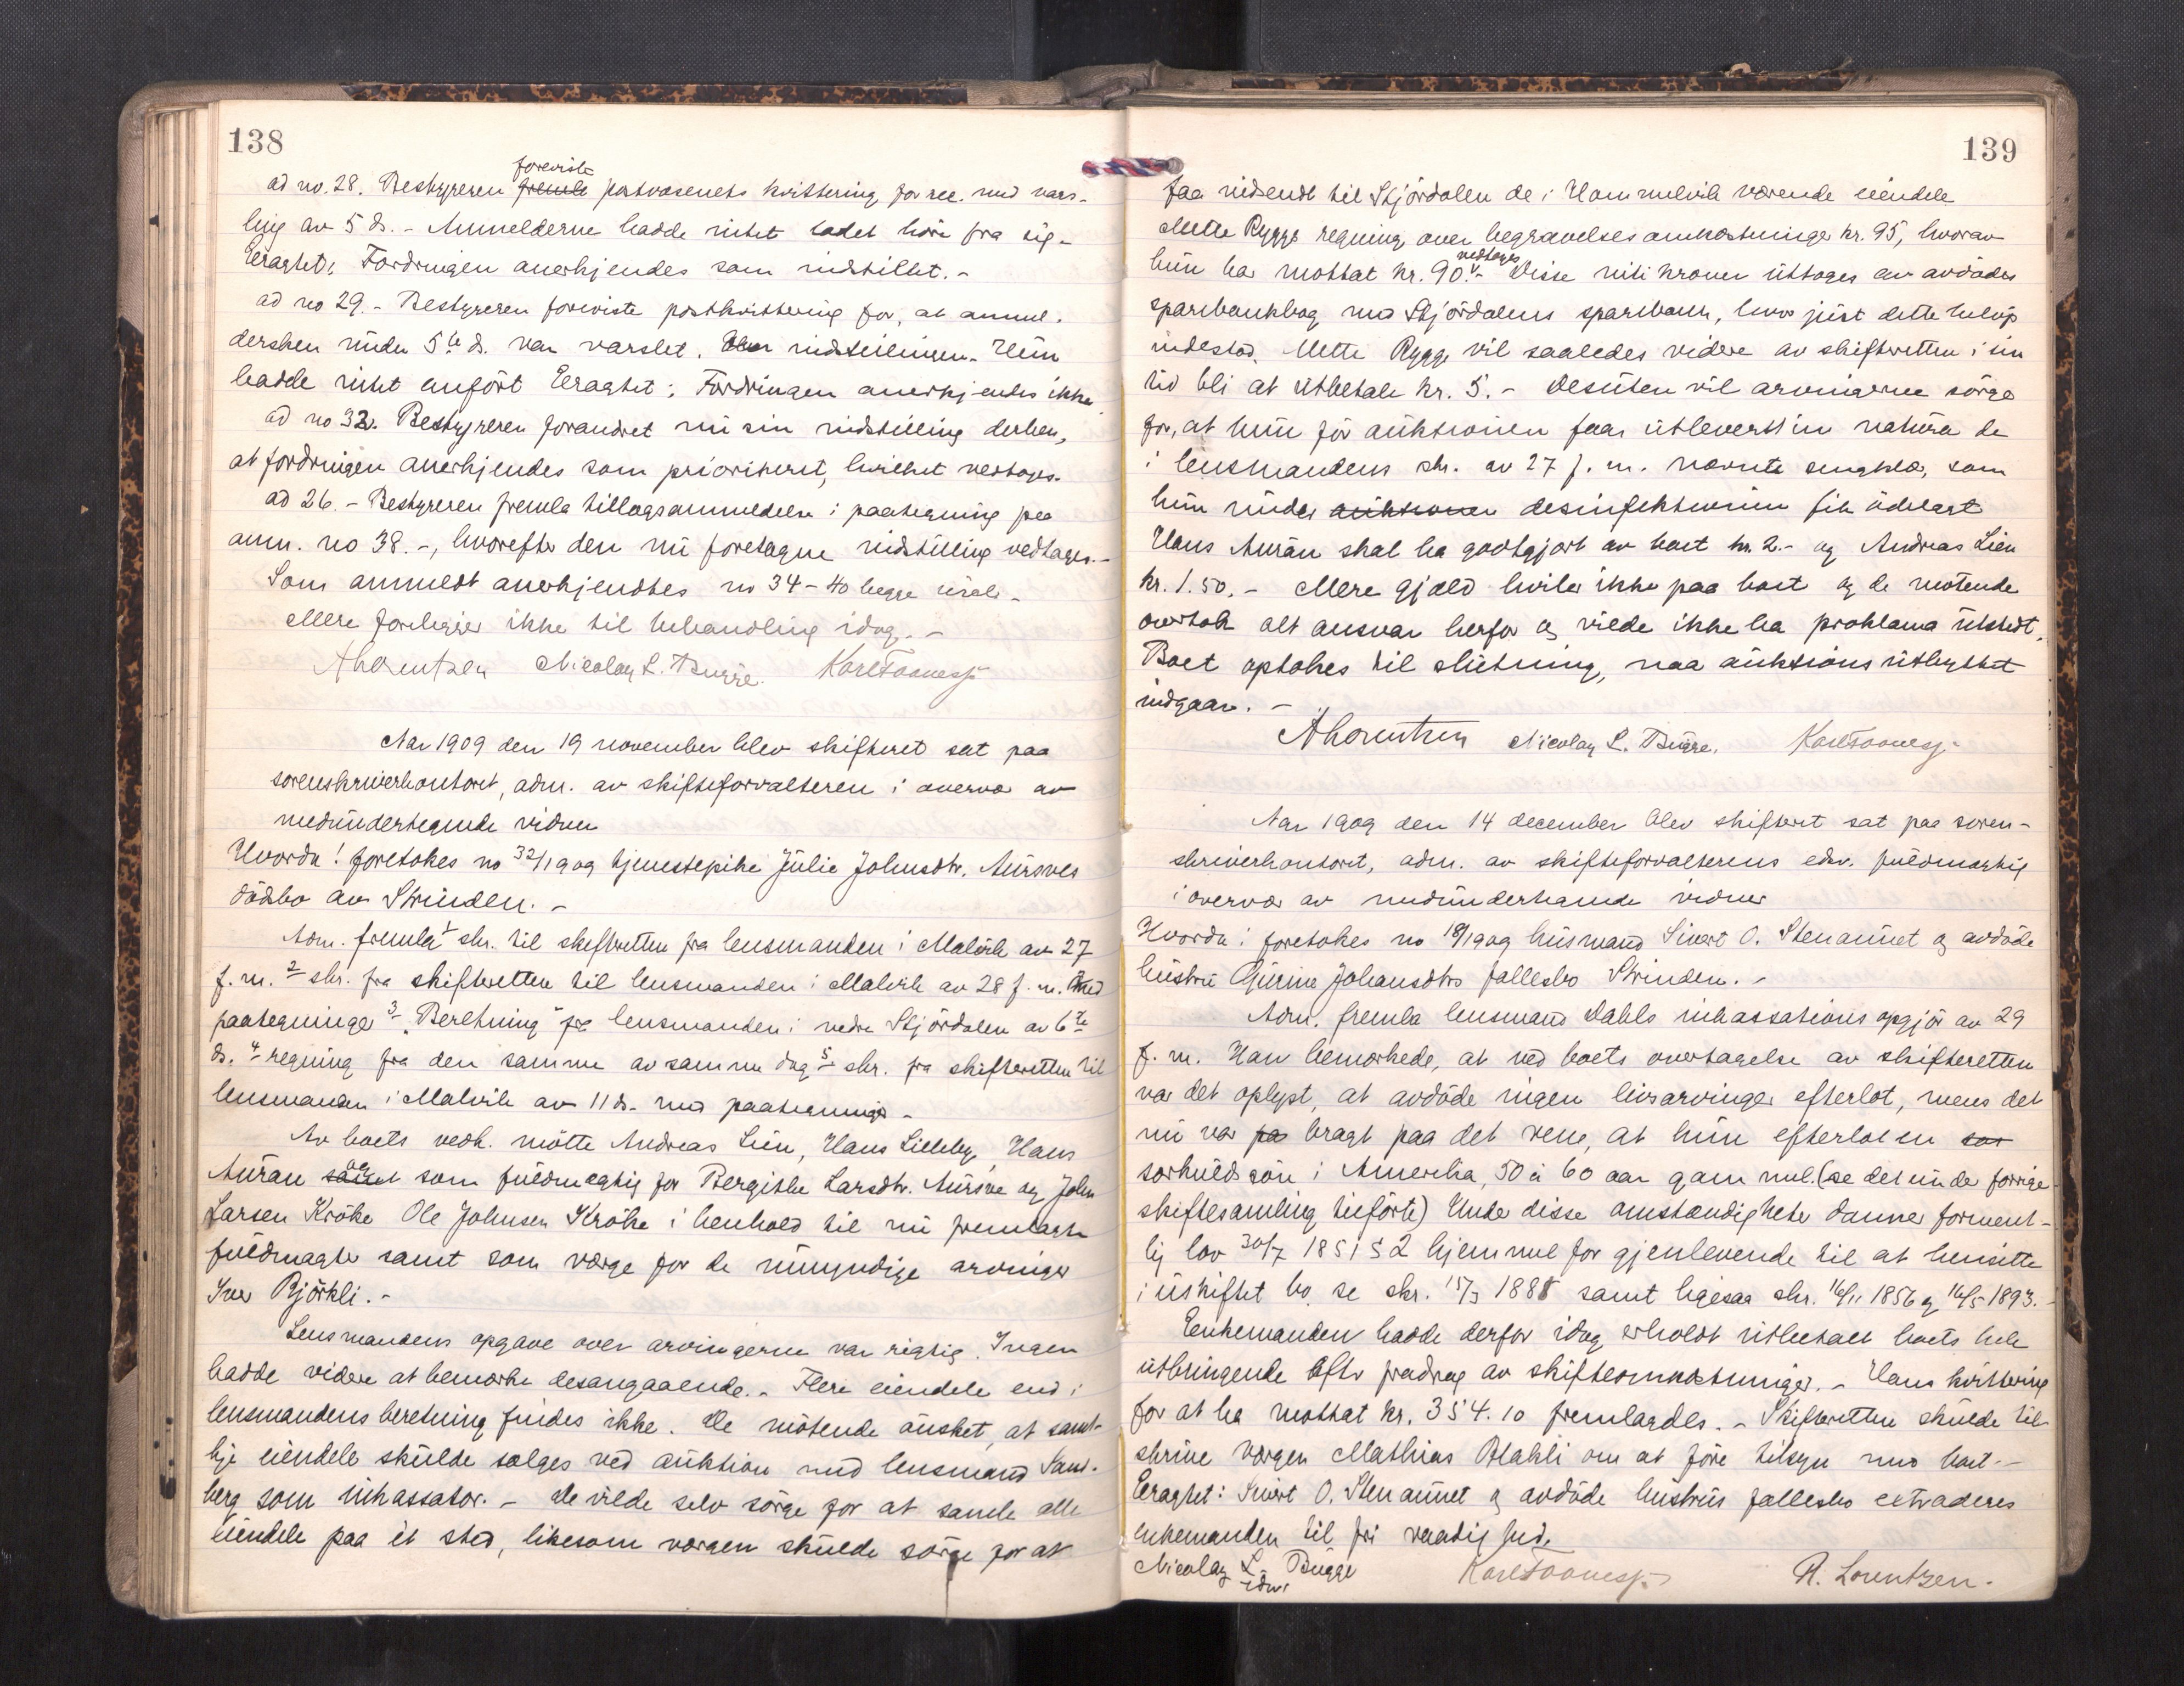 138
foreviste
ad no. 28. Bestyreren fremla postvæsenets kvittering for rec. med vars-
ling av 5 ds. - Anmelderne hadde intet ladet høre fra sig -
Eragtet: Fordringen anerkjendes som indstillet. -
ad no 29. - Bestyreren foreviste postkvittering for, at anmel-
dersken under 5te ds. var varslet. indstillingen. Hun
hadde intet anført Eragtet: Fordringen anerkjendes ikke
ad no 32. Bestyreren forandret nu sin indstilling derhen,
at fordringen anerkjendes som prioritert, hvilket vedtoges.
ad 26. - Bestyreren fremla tillægsanmeldelse i paategning paa
anm. no 38. -, hvorefter den nu foretagne indstilling vedtages. -
Som anmeldt anerkjendtes no 34 - 40 begge incl. -
Mere foreligger ikke til behandling idag. -
A Lorentzen Nicolay L. Bugge. Karl Foosnæs
Aar 1909 den 19 november blev skifteret sat paa
sorenskriverkontoret, adm. av skifteforvalteren i overvær av
medundertegnede vidner
Hvorda! foretokes no 32/1909 tjenestepike Julie Johnsdtr. Aursves
dødsbo av Strinden. -
Adm. fremla 1 skr. til skifteretten fra lensmanden i Malvik av 27
f. m. 2 skr. fra skifteretten til lensmanden i Malvik av 28 f. m. med
paategninger 3 "Beretning" fra lensmanden i nedre Stjørdalen av 6te
ds. 4 regning fra den samme av samme dag 5 skr. fra skifteretten til
lensmanden i Malvik av 11 ds. med paategninger -
Av boets vedk. møtte Andreas Lien, Hans Lilleby, Hans
Auran samt og som fuldmægtig for Bergithe Larsdtr. Aursve og John
Larsen Krøke Ole Johnsen Krøke i henhold til nu fremlagte
fuldmagter samt som værge for de umyndige arvinger
Iver Bjørkli. -
Lensmandens opgave over arvingerne var rigtig. Ingen
hadde videre at bemerke desangaaende. - Flere eiendele end i
lensmandens beretning findes ikke. De møtende ønsket, at samt-
lige eiendele skulde sælges ved auktion med lensmand Sand-
berg som inkassator. - De vilde selv sørge for at samle alle
eiendele paa et sted, likesom værgen skulde sørge for at
139
faa nedsendt til Stjørdalen de i Hommelvik værende eiendele
Mette Rygge regning over begravelsesomkostninger kr. 95, hvorav
vedtoges
hun har mottat kr. 90. - Disse nitti kroner uttoges av avdødes
sparebankbog med Stjørdalens sparebank, hvor just dette beløp
indestod. Mette Rygge vil saaledes videre av skifteretten i sin
tid bli at utbetale kr. 5. - Desuten vil arvingerne sørge
for, at hun før auktionen faar utlevert in natura de
i lensmandens skr. av 27 f. m. nævnte sengklær, som
hun under auktionen desinfektionen fik ødelagt
Hans Auran skal ha godtgjort av boet kr. 2. - og Andreas Lien
kr. 1.50. - Mere gjæld hviler ikke paa boet og de møtende
overtok alt ansvar herfor og vilde ikke ha proklama utstedt.
Boet optokes til slutning, naa auktionsutbyttet
indgaar. -
A Lorentzen Nicolay L. Bugge. Karl Foosnæs
Aar 1909 den 14 december blev skifteret sat paa soren-
skriverkontoret, adm. av skifteforvalterens edsv. fuldmægtig
i overvær av medunderhavende vidner
Hvorda: foretokes no 18/1909 husmand Sivert O. Stenaunet og avdøde
hustru Gurine Johansdtrs fællesbo Strinden. -
Adm. fremla lensmand Dahls inkassationsopgjør av 29
f. m. Han bemerkede, at ved boets overtagelse av skifteretten
var det oplyst, at avdøde ingen livsarvinger efterlot, mens det
nu var pa bragt paa det rene, at hun efterlot en sær
særkuldssøn i Amerika, 50 à 60 aar gammel. (se det under forrige
skiftesamling tilførte) Under disse omstændigheter danner forment-
lig lov 30/7 1851 § 2 hjemmel for gjenlevende til at hensitte
i uskiftet bo se skr. 15/3 1888 samt ligesaa skr. 16/11 1856 og 16/5 1893. -
Enkemanden hadde derfor idag erholdt utbetalt boets hele
utbringende efter fradrag av skifteomkostninger. - Hans kvittering
for at ha mottat kr. 354.10 fremlagdes. - Skifteretten skulde til-
skrive værgen Mathias Blakli om at føre tilsyn med boet. -
Eragtet: Sivert O. Stenaunet og avdøde hustrus fællesbo extraderes
enkemanden til fri raadighed.
Nicolay L. Bugge Karl Foosnæs R. Lorentzen.
edsv.